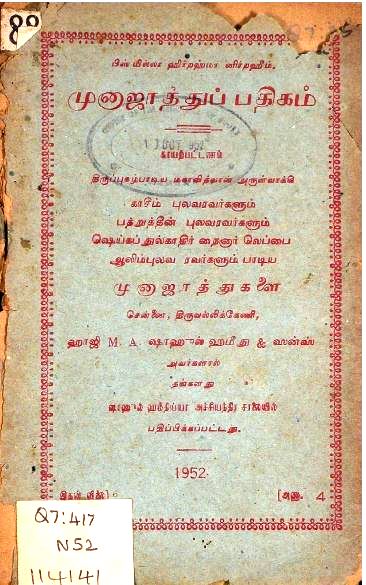 பிஸ் மில்லா ஹிர்றஹ்மா னிர்றஹீம்.
முனாஜாத்துப் பதிகம்
காயற்பட்டணம்
திருப்புகழ்பாடிய மகாவித்வான் அருள்வாக்கி
காசிம் புலவரவர்களும்
பத்றுத்தீன் புலவரவர்களும்
ஷெய்கப்துல்காதிர் நைனார் லெப்பை
ஆலிம்புலவ ரவர்களும் பாடிய
முனாஜாத்துகளை
சென்னை, திருவல்லிக்கேணி,
ஹாஜி M. A. ஷாஹுல் ஹமீது & ஸன்ஸ்
அவர்களால்
தங்களது
ஷாஹுல் ஹமீதிய்யா அச்சியந்திர சாலையில்
பதிப்பிக்கப்பட்டது.
1952.
இதன் விலை] [அணா 4
Q7:417
N52
114141